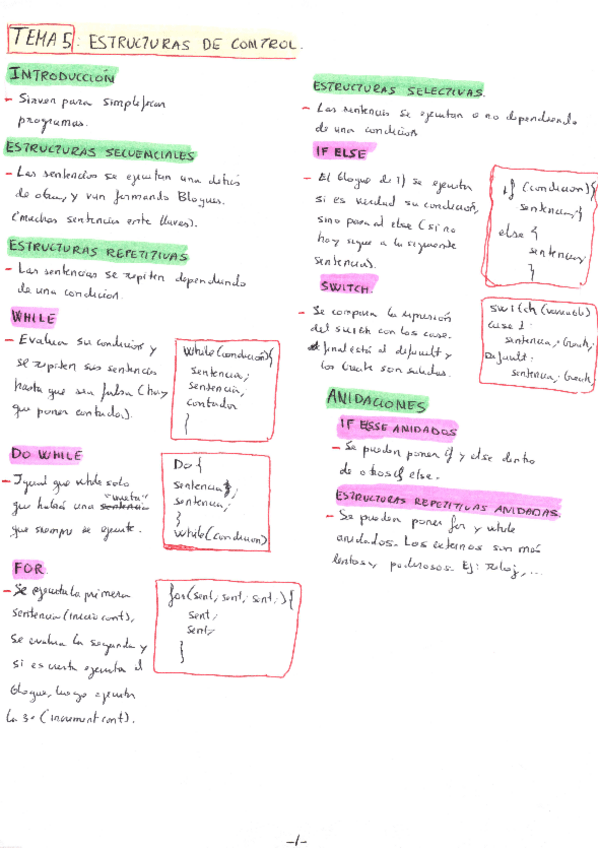 TEMA 5: ESTRUCTURAS DE CONTROL.
INTRODUCCIÓN
- Sirven para simplificar
programas.
ESTRUCTURAS SECUENCIALES
- Las sentencias se ejecutan una detrás
de otra, y van formando Bloques.
(muchas sentencias entre llaves).
ESTRUCTURAS REPETITIVAS
- Las sentencias se repiten dependiendo
de una condición.
WHILE
- Evaluan su condición y
se repiten sus sentencias
hasta que sea falsa (hay
que poner contador).
while(condición){
sentencia;
sentencia;
contador
}
DO WHILE
- Igual que while solo
que habrá una sentencia "meta"
que siempre se ejecute.
Do {
sentencia;
sentencia;
}
while(condicion)
FOR
- Se ejecuta la primera
sentencia (inicio cont),
se evalua la segunda y
si es cierta ejecuta el
bloque, luego ejecuta
la 3ª (increment cont).
for(sent; sent; sent;){
sent;
sent;
}
ESTRUCTURAS SELECTIVAS.
- Las sentencias se ejecutan o no dependiendo
de una condición
IF ELSE
- El bloque de if se ejecuta
si es verdad su condición,
sino pasa al else (si no
hay sigue a la siguiente
sentencia).
if (condicion){
sentencia;}
else {
sentencia;
}
SWITCH.
- Se compara la expresión
del switch con los case.
Al final está el default y
los break son salidas.
switch(variable)
case 1:
sentencia; break;
Default:
sentencia; break;
ANIDACIONES
IF ESSE ANIDADOS
- Se pueden poner if y else dentro
de otros if else.
ESTRUCTURAS REPETITIVAS ANIDADAS.
- Se pueden poner for y while
anidados. Los externos son más
lentos y poderosos. Ej: Reloj, ...
-1-